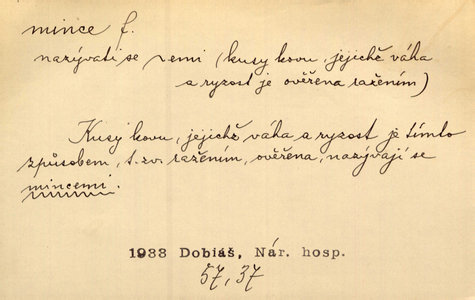 mince f.
nazývati se ~emi (kusy kovu, jejichž váha
a ryzost je ověřena ražením)
Kusy kovu, jejichž váha a ryzost je tímto
způsobem, t. zv. ražením, ověřena, nazývají se
mincemi.
1933 Dobiáš, Nár. hosp.
57,37